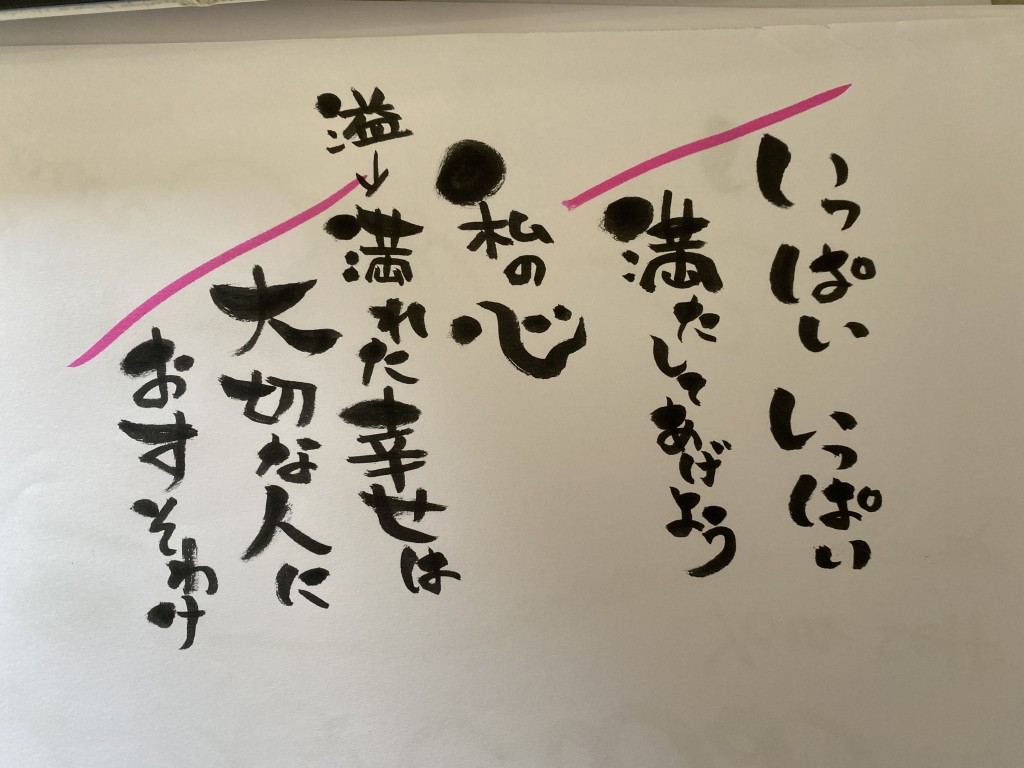 いっぱい いっぱい
満たしてあげよう
私の心
溢→満れた幸せは
大切な人に
おすそわけ